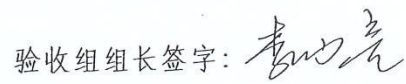 验收组组长签字：